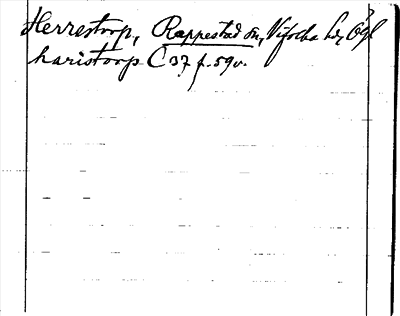 Herrestorp, Rappestad sn, Vifolka hd, Ögl
haristorp C 37 f. 59v.